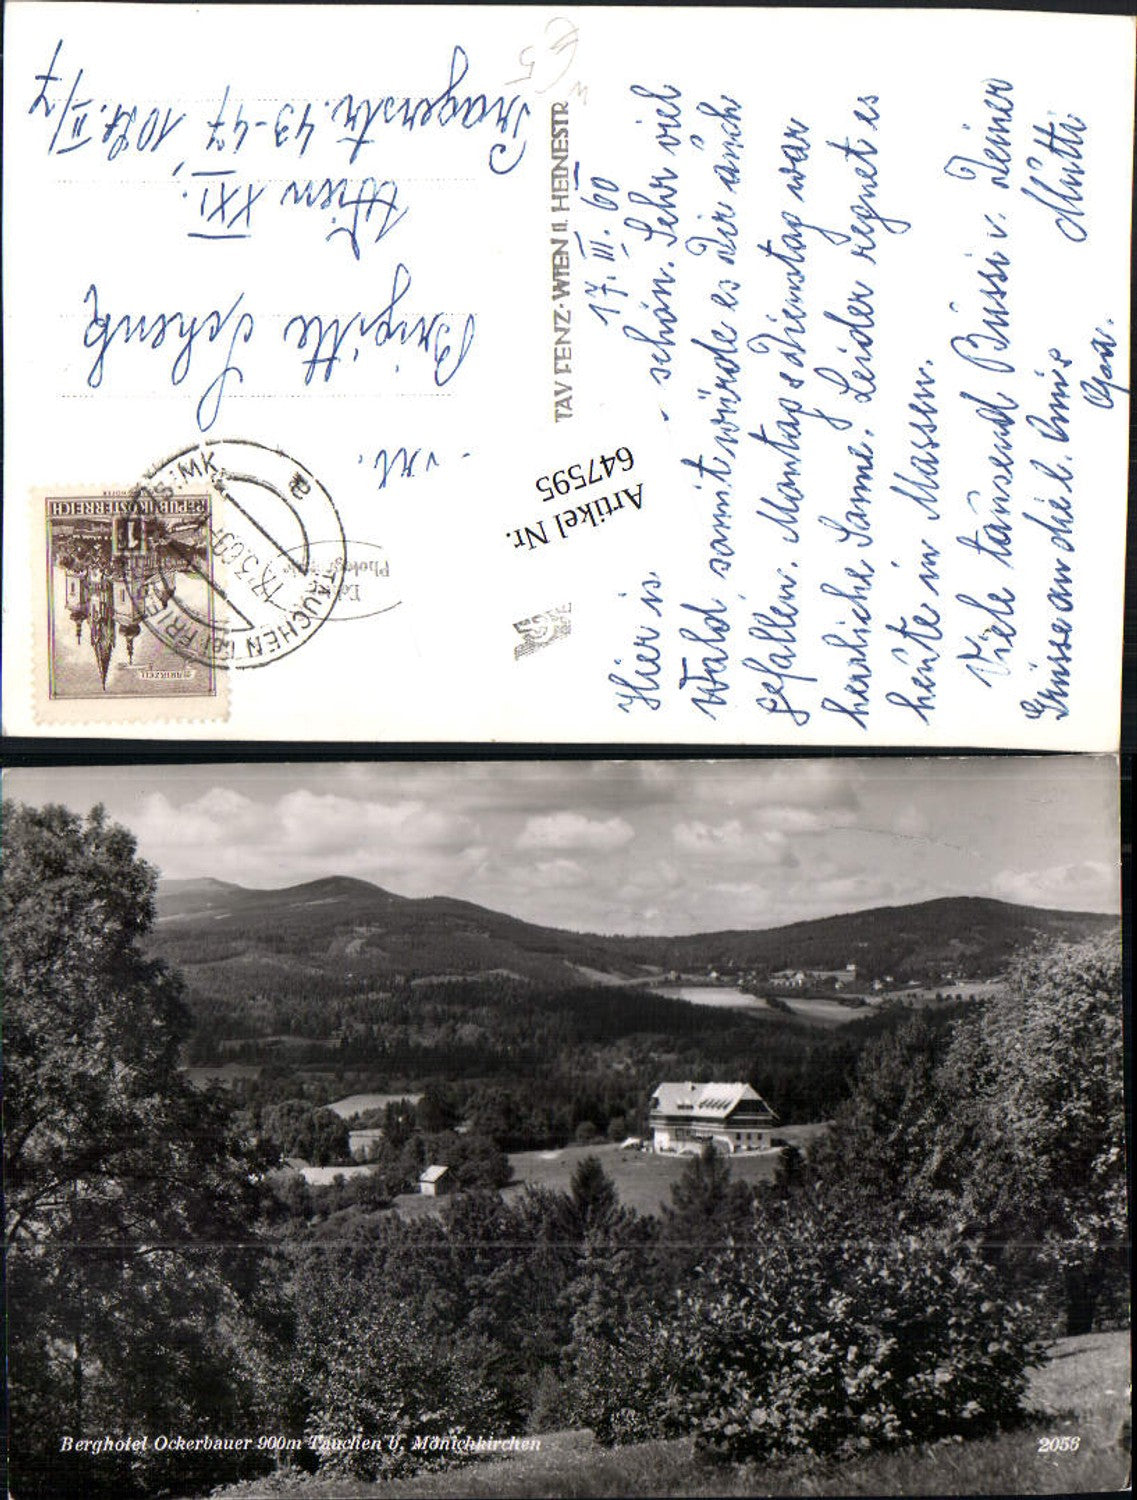 17. III. 60
Hier is - schön. Sehr viel
Wald somit würde es Dir auch
gefallen. Montag & Dienstag war
herrliche Sonne. Leider regnet es
heute in Massen.
Viele tausend Bussi v. Deiner
Grüsse an die l. Omi Mutti
Artikel Nr.
647595
TAV FENZ·WIEN II. HEINESTR
€ 5
Brigitte Schenk
Wien XXI.,
Pragerstr. 43-47 10 St. II/7
REPUBLIK ÖSTERREICH
MARIAZELL
1
TAUCHEN
17.3.60
a
Berghotel Ockerbauer 900m Tauchen b. Mönichkirchen
2056